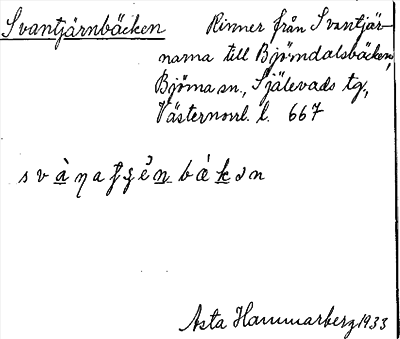 Svantjärnbäcken Rinner från Svantjär-
narna till Björndalsbäcken,
Björna sn., Själevads tg,
Västernorrl. l. 667
Asta Hammarberg 1933